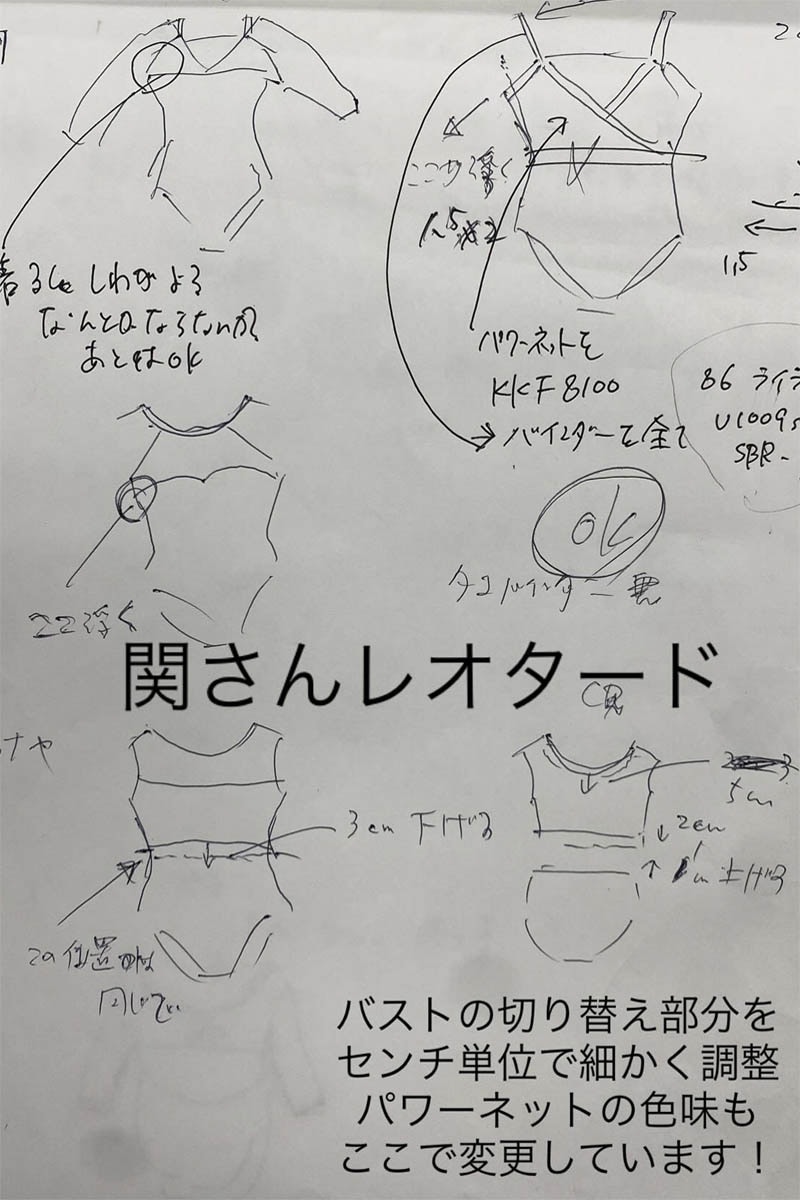 着るとしわがよる
なんとかならないか
あとはOK
ここが浮く
1.5
パワーネットを
KKF8100
バインダーを全て
86 ライラ
U1009
SBR-
OK
ここ浮く
関さんレオタード
3cm 下げる
5cm
2cm
1cm 上げる
この位置は
同じで
バストの切り替え部分を
センチ単位で細かく調整
パワーネットの色味も
ここで変更しています!